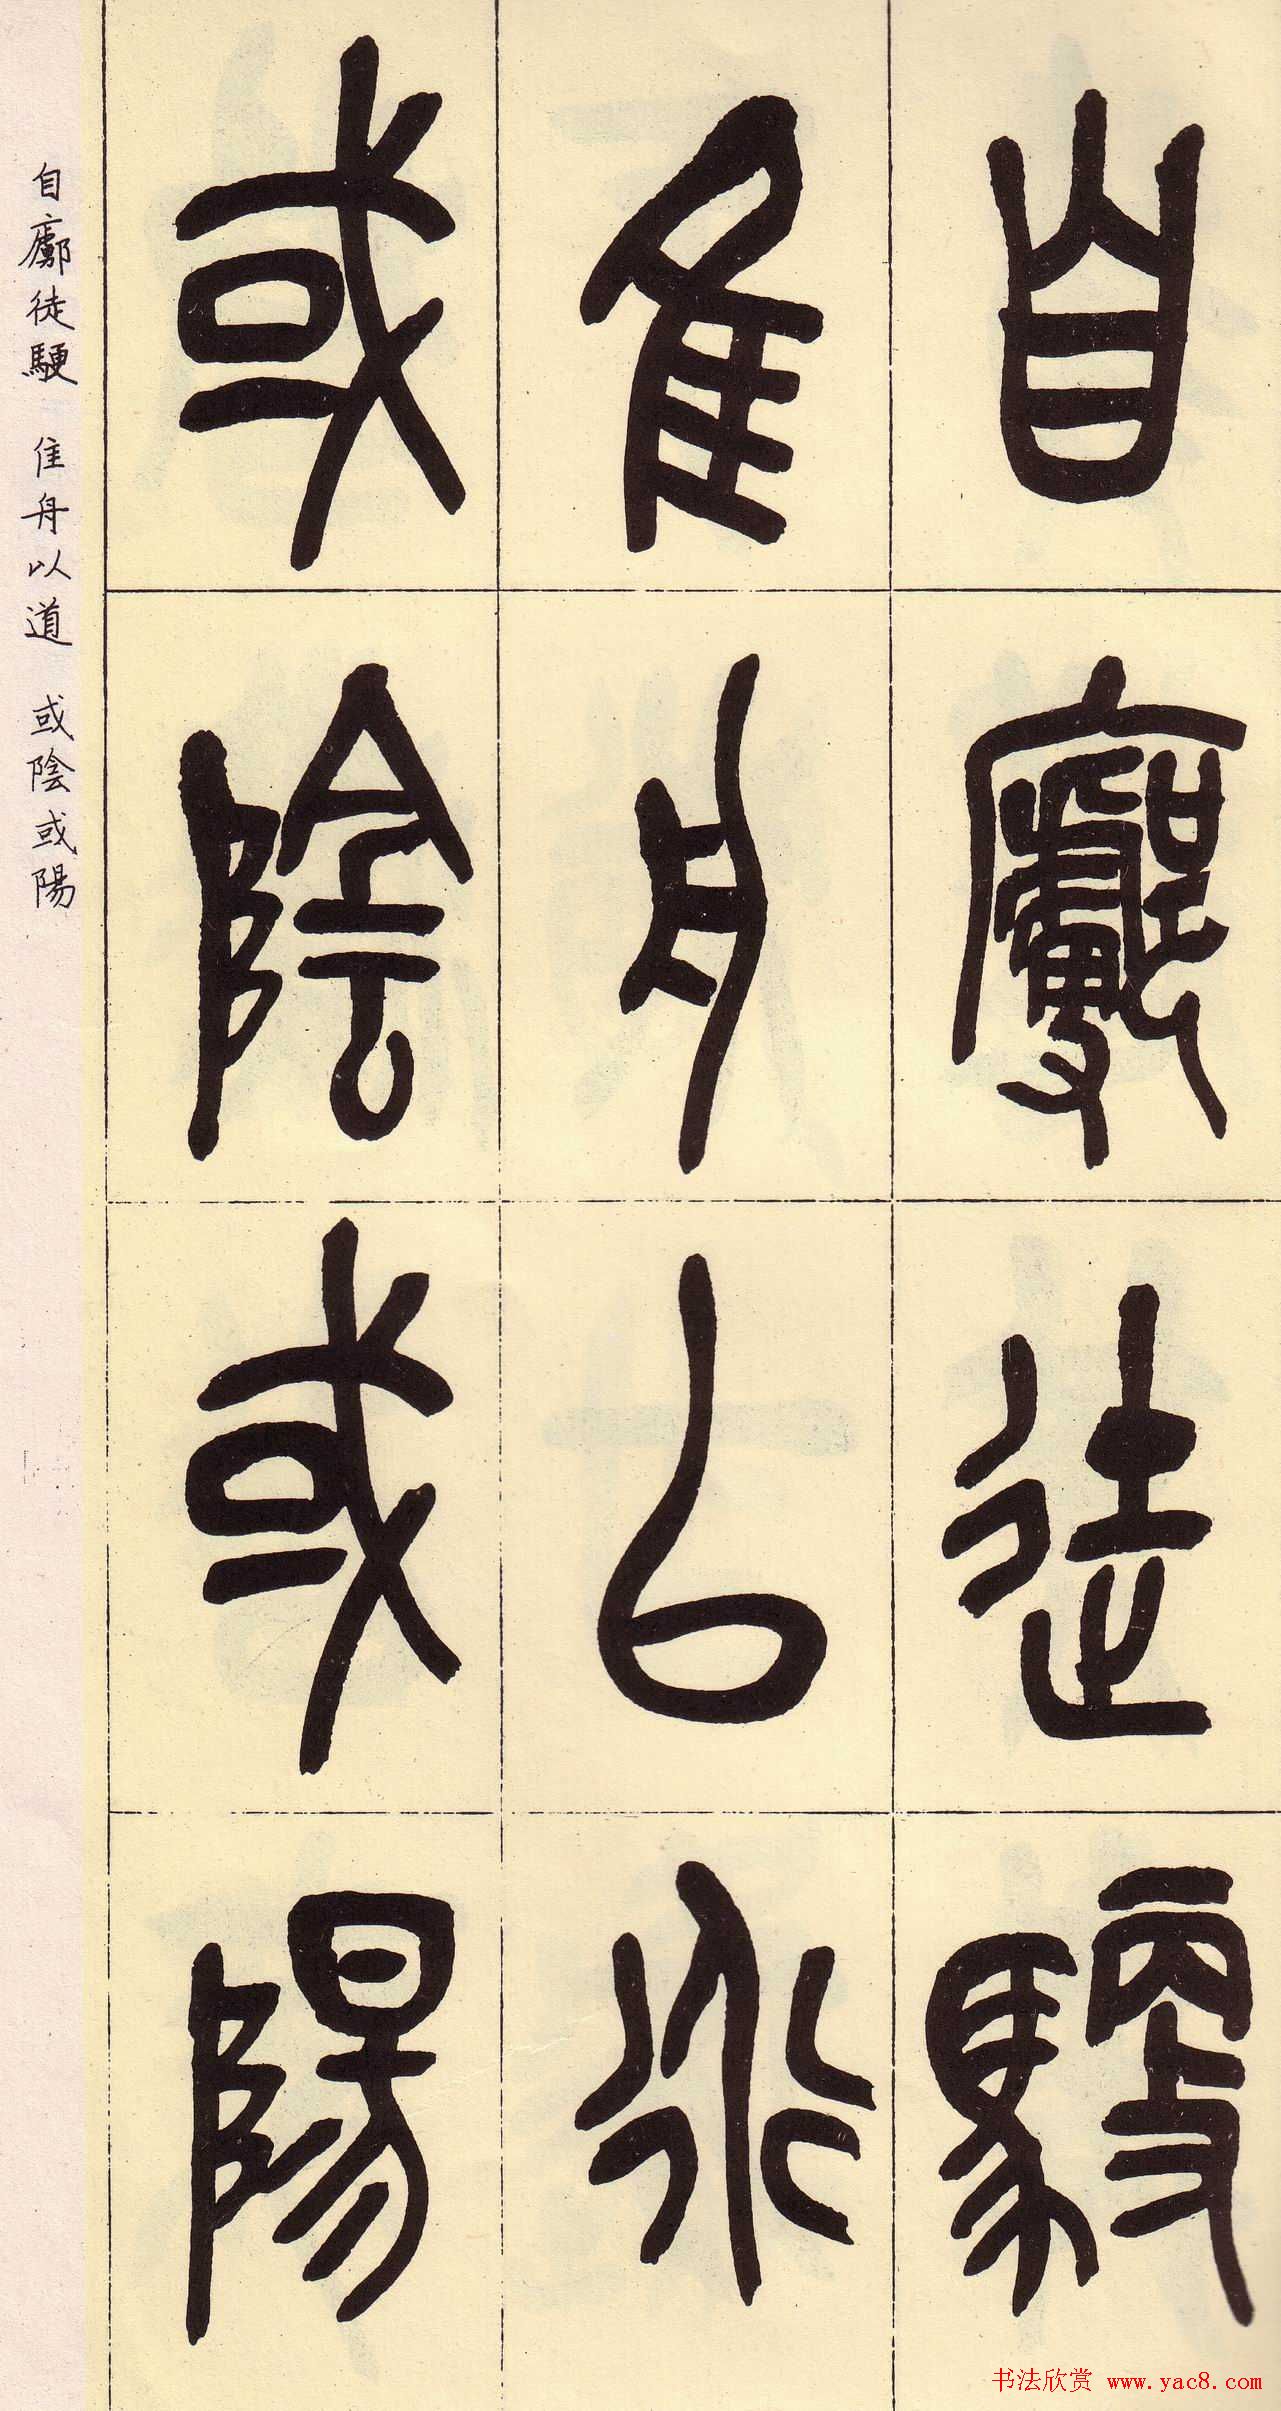 自徒馭
隹舟以
或陰或陽
自徒 隹舟以道 或陰或陽
书法欣赏 www.yac8.com